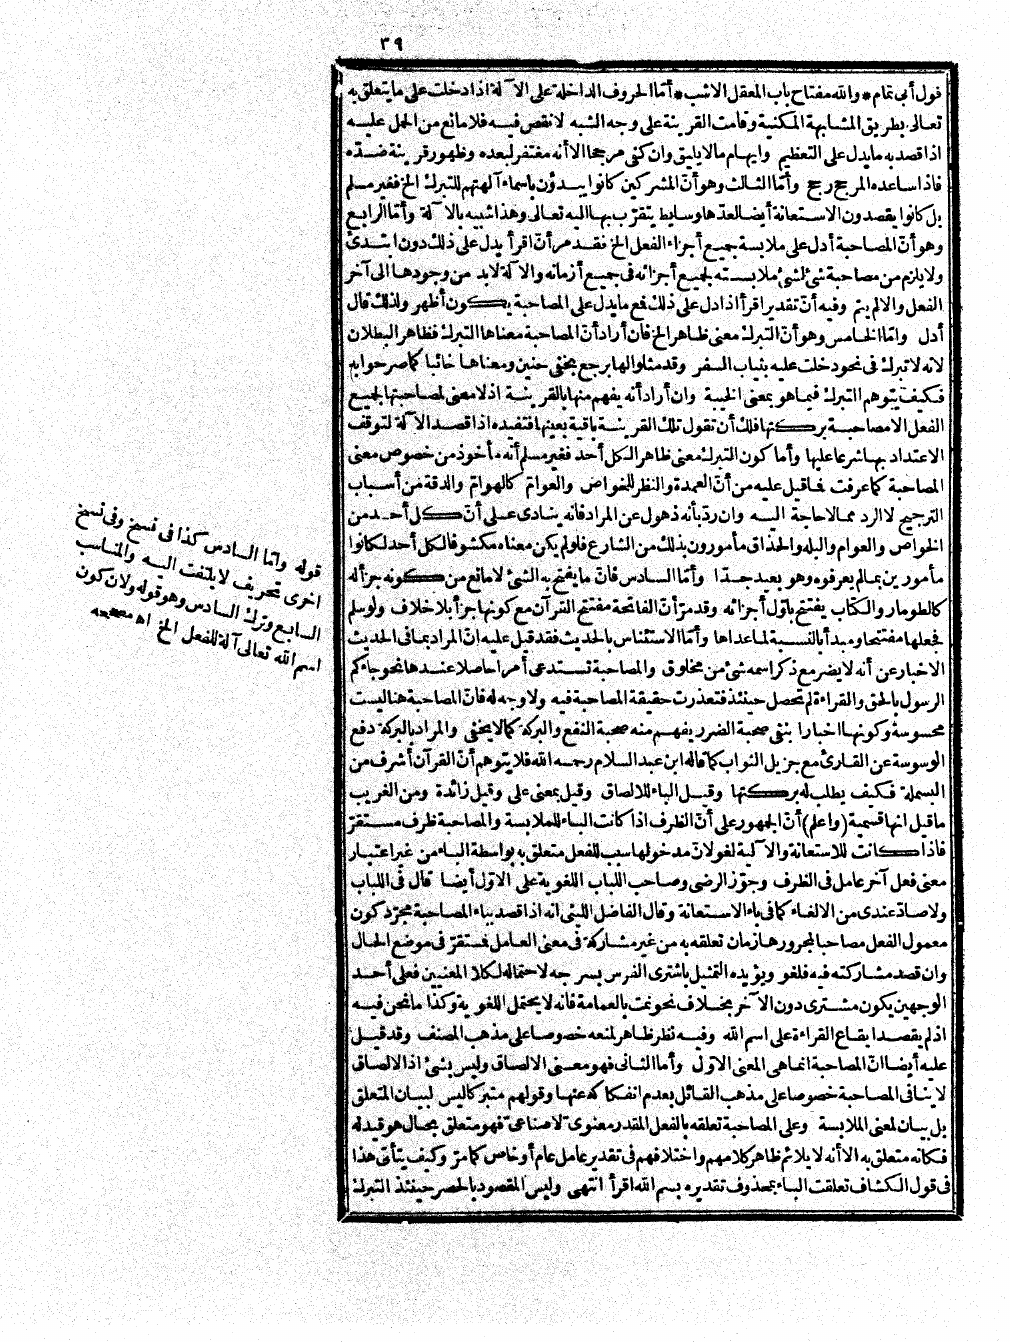 ٣٩
قول أبى تمام * والله مفتاح باب المعقل الاشب * أمّا الحروف الداخلة على الآلة اذا دخلت على ما يتعلق به
تعالى بطريق المشابهة المكنية وقامت القرينة على وجه الشبه لا نقص فيه فلا مانع من الحمل عليه
اذا قصد به ما يدل على التعظيم وايهام ما لا يليق وان كفى مرجحا الا أنه مغتفر لبعده وظهور قرينة ضدّه
فاذا ساعده المرجح رجح وأمّا الثالث وهو أنّ المشركين كانوا يبدؤن باسماء آلهتهم للتبرك الخ فغير مسلم
بل كانوا يقصدون الاستعانة أيضا لعدّها وسايط يتقرّب بها اليه تعالى وهذا شبيه بالآلة وأمّا الرابع
وهو أنّ المصاحبة أدل على ملابسة جميع أجزاء الفعل الخ فقد مر أنّ اقرأ يدل على ذلك دون ابتدئ
ولا يلزم من مصاحبة شئ لشئ ملابسته لجميع أجزائه فى جميع أزمانه والآلة لا بد من وجودها الى آخر
الفعل والا لم يتم وفيه أنّ تقدير اقرأ اذا دل على ذلك فمع ما يدل على المصاحبة يكون أظهر ولذلك قال
أدل وامّا الخامس وهو أنّ التبرك معنى ظاهر الخ فان أراد أنّ المصاحبة معناها التبرك فظاهر البطلان
لانه لا تبرك فى نحو دخلت عليه بثياب السفر وقد مثلوا لها برجع بخفى حنين ومعناها خائبا كما صرحوا به
فكيف يتوهم التبرك فيما هو بمعنى الخيبة وان أراد أنه يفهم منها بالقرينة اذ لا معنى لمصاحبتها لجميع
الفعل الا مصاحبة بركتها فلك أن تقول تلك القرينة باقية بعينها فتفيده اذا قصد الآلة لتوقف
الاعتداد بها شرعا عليها وأما كون التبرك معنى ظاهر الكل أحد فغير مسلم أنه مأخوذ من خصوص معنى
المصاحبة كما عرفت فما قيل عليه من أنّ العمدة والنظر للخواص والعوامّ كالهوامّ والدقة من أسباب
الترجيح لا الرد مما لا حاجة اليه وان ردّ بأنه ذهول عن المراد فانه ينادى على أنّ كل أحد من
الخواص والعوام والبله والحذاق مأمورون بذلك من الشارع فلو لم يكن معناه مكشوفا لكل أحد لكانوا
مأمورين بما لم يعرفوه وهو بعيد جدّا وأمّا السادس فانّ ما يفتح به الشئ لا مانع من كونه جزأ له
كالطومار والكتاب يفتتح باوّل أجزائه وقد مرّ أنّ الفاتحة مفتتح القرآن مع كونها جزأ بلا خلاف ولو سلم
فجعلها مفتتحا ومبدأ بالنسبة لما عداها وأمّا الاستئناس بالحديث فقد قيل عليه انّ المراد بما فى الحديث
الاخبار عن أنه لا يضر مع ذكر اسمه شئ من مخلوق والمصاحبة تستدعى أمرا حاصلا عندها نحو جاءكم
الرسول بالحق والقراءة لم تحصل حينئذ فتعذرت حقيقة المصاحبة فيه ولا وجه له فانّ المصاحبة هنا ليست
محسوسة وكونها اخبارا بنفى صحبة الضرر يفهم منه صحبة النفع والبركة كما لا يخفى والمراد بالبركة دفع
الوسوسة عن القارئ مع جزيل الثواب كما قاله ابن عبد السلام رحمه الله فلا يتوهم أنّ القرآن أشرف من
البسملة فكيف يطلب له بركتها وقيل الباء للالصاق وقيل بمعنى على وقيل زائدة ومن الغريب
ما قيل انها قسمية (واعلم) أنّ الجمهور على أنّ الظرف اذا كانت الباء للملابسة والمصاحبة ظرف مستقرّ
فاذا كانت للاستعانة والآلية لغو لانّ مدخولها سبب للفعل متعلق به بواسطة الباء من غير اعتبار
معنى فعل آخر عامل فى الظرف وجوّز الرضى وصاحب اللباب اللغوية على الاوّل أيضا قال فى اللباب
ولا صادّ عندى من الالغاء كما فى باء الاستعانة وقال الفاضل الليثى انه اذا قصد بباء المصاحبة مجرّد كون
معمول الفعل مصاحبا لمجرورها زمان تعلقه به من غير مشاركة فى معنى العامل فمستقرّ فى موضع الحال
وان قصد مشاركته فيه فلغو ويؤيده التمثيل باشترى الفرس بسرجه لاحتماله لكلا المعنيين فعلى أحد
الوجهين يكون مشترى دون الآخر بخلاف نحو نمت بالعمامة فانه لا يحتمل اللغوية وكذا ما نحن فيه
اذ لم يقصد ايقاع القراءة على اسم الله وفيه نظر ظاهر لمنعه خصوصا على مذهب المصنف وقد قيل
عليه أيضا انّ المصاحبة انما هى المعنى الاوّل وأما الثانى فهو معنى الالصاق وليس بشئ اذ الالصاق
لا ينافى المصاحبة خصوصا على مذهب القائل بعدم انفكاكه عنها وقولهم متبركا ليس لبيان المتعلق
بل بيان لمعنى الملابسة وعلى المصاحبة تعلقه بالفعل المقدر معنوىّ لا صناعىّ فهو متعلق بحال هو قيد له
فكأنه متعلق به الا أنه لا يلائم ظاهر كلامهم واختلافهم فى تقدير عامل عام أو خاص كما مرّ وكيف يتأتى هذا
فى قول الكشاف تعلقت الباء بمحذوف تقديره بسم الله اقرأ انتهى وليس المقصود بالحصر حينئذ التبرك
قوله وامّا السادس كذا فى نسخ وفى نسخ
اخرى تحريف لا يلتفت اليه والمناسب
السابع وترك السادس وهو قوله ولان كون
اسم الله تعالى آلة للفعل الخ اه مصححه